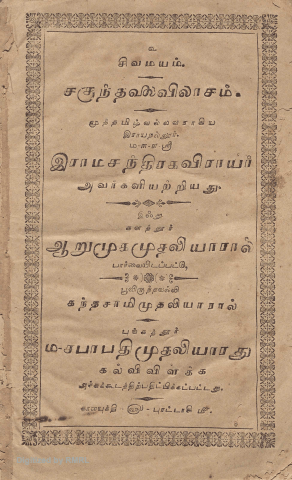 உ
சிவமயம்.
சகுந்தலவிலாசம்.
முத்தமிழ்வல்லவராகிய
இராயநல்லூர்
ம-ள-ள-ஸ்ரீ
இராமசந்திரகவிராயர்
அவர்களியற்றியது.
இஃது
ஆறுமுகமுதலியாரால்
பார்வையிடப்பட்டு,
பூவிருந்தவல்லி
கந்தசாமிமுதலியாரால்
புரசை
ம-சபாபதிமுதலியாரது
கல்விவிளக்க
அச்சுக்கூடத்திற்பதிப்பிக்கப்பட்டது.
காளயுத்தி - ௵ - புரட்டாசி ௴